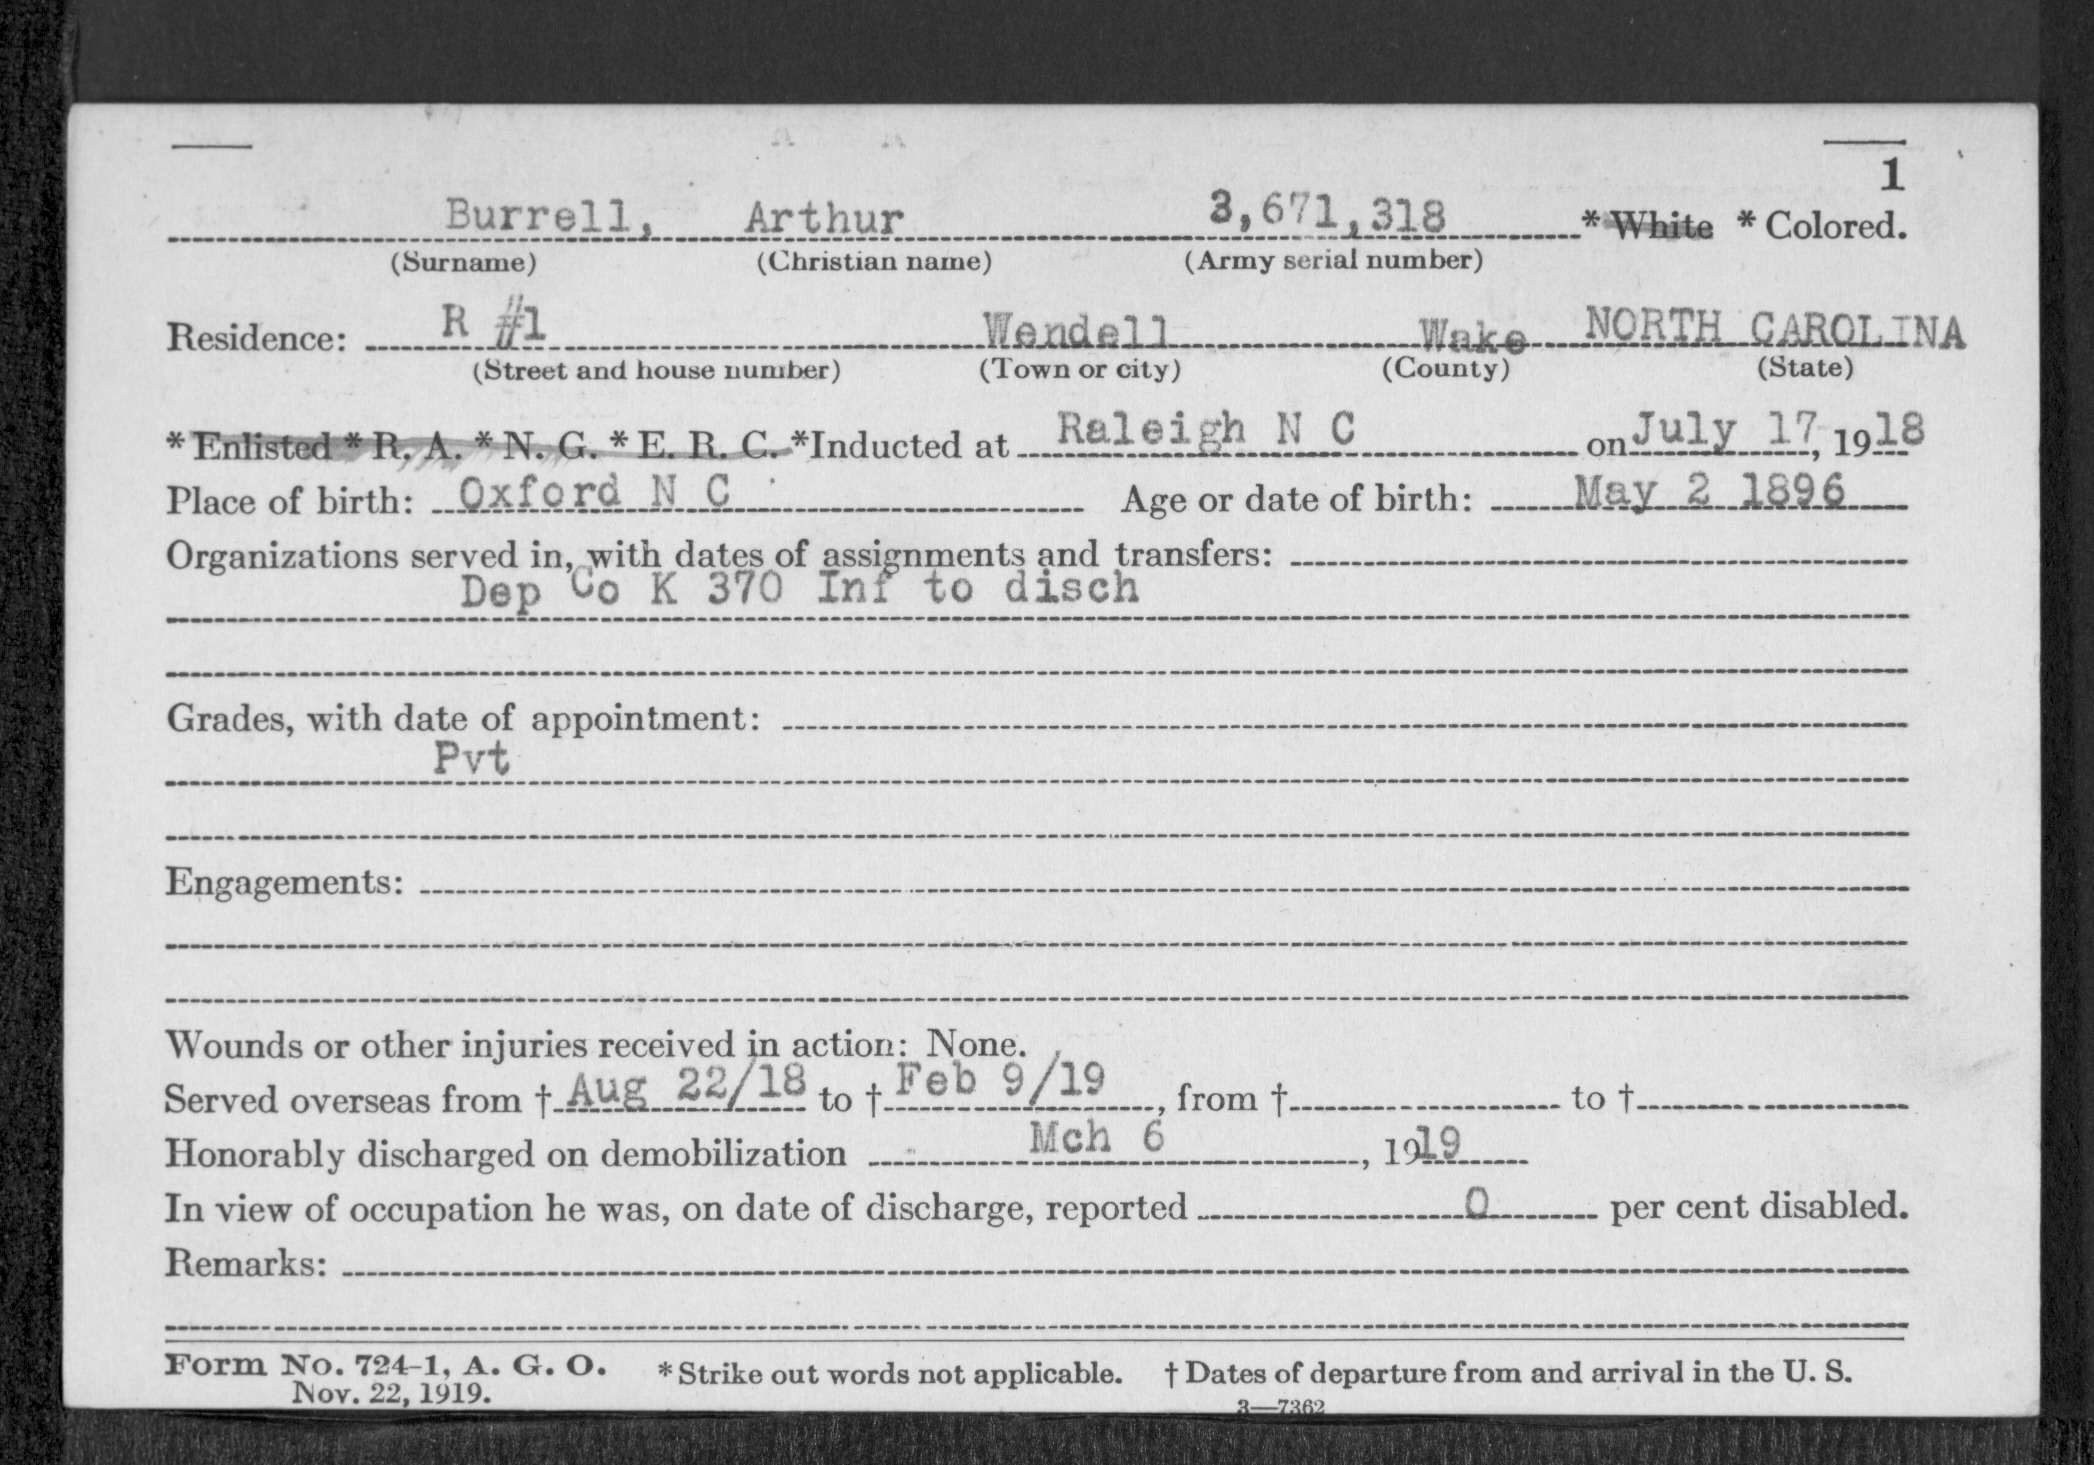 1
Burrell, Arthur 3,671,318 * White * Colored.
(Surname) (Christian name) (Army serial number)
Residence: R #1 Wendell Wake NORTH CAROLINA
(Street and house number) (Town or city) (County) (State)
* Enlisted * R. A. * N. G. * E. R. C. *Inducted at Raleigh N C on July 17, 1918
Place of birth: Oxford N C Age or date of birth: May 2 1896
Organizations served in, with dates of assignments and transfers:
Dep Co K 370 Inf to disch
Grades, with date of appointment:
Pvt
Engagements:
Wounds or other injuries received in action: None.
Served overseas from † Aug 22/18 to † Feb 9/19, from † to †
Honorably discharged on demobilization Mch 6, 1919
In view of occupation he was, on date of discharge, reported 0 per cent disabled.
Remarks:
Form No. 724-1, A. G. O. * Strike out words not applicable. † Dates of departure from and arrival in the U. S.
Nov. 22, 1919.
3—7362